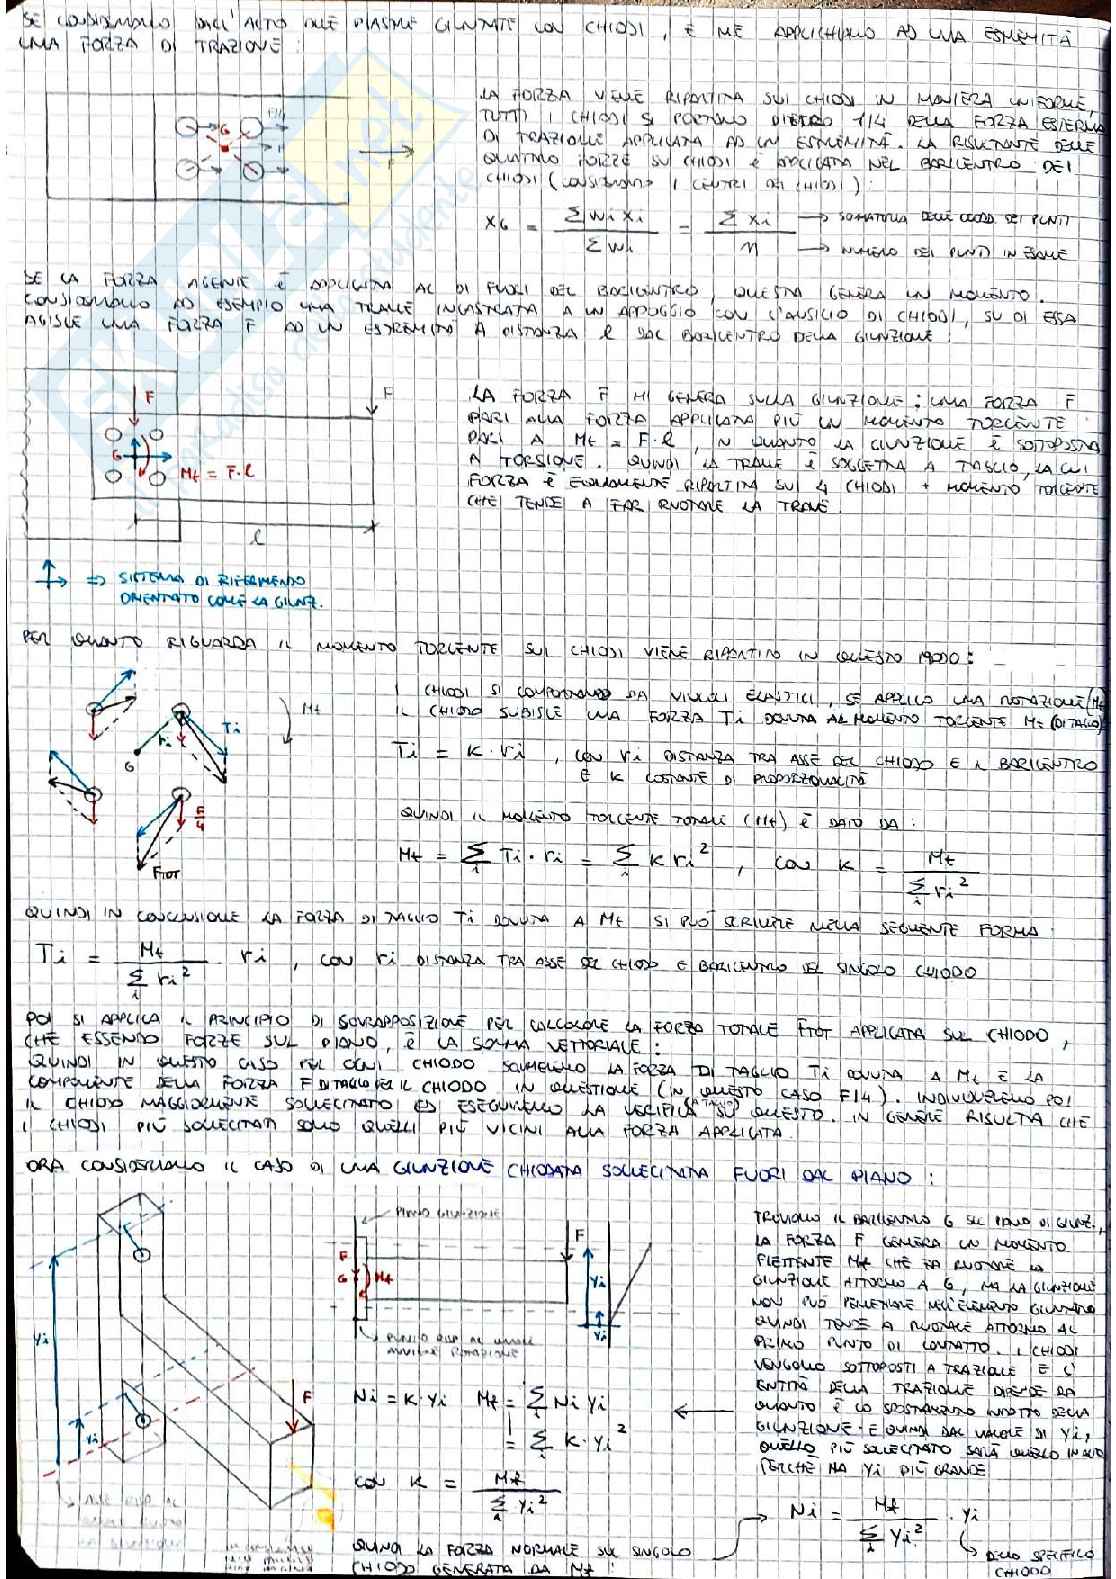 SE CONSIDERIAMO DALL'ALTO DUE PIASTRE GIUNTATE CON CHIODI, E NE APPLICHIAMO AD UNA ESTREMITÀ
UNA FORZA DI TRAZIONE:
LA FORZA VIENE RIPARTITA SUI CHIODI IN MANIERA UNIFORME,
TUTTI I CHIODI SI PORTANO DIETRO 1/4 DELLA FORZA ESTERNA
DI TRAZIONE APPLICATA AD UN ESTREMITÀ. LA RISULTANTE DELLE
QUATTRO FORZE SU CHIODI È APPLICATA NEL BARICENTRO DEI
CHIODI (CONSIDERANDO I CENTRI DEI CHIODI):
F/4
G
F
XG = Σ Wi Xi / Σ Wi = Σ Xi / n
→ SOMMATORIA DELLE COORD. DEI PUNTI
→ NUMERO DEI PUNTI IN ESAME
SE LA FORZA AGENTE È APPLICATA AL DI FUORI DEL BARICENTRO, QUESTA GENERA UN MOMENTO.
CONSIDERIAMO AD ESEMPIO UNA TRAVE INCASTRATA A UN APPOGGIO CON L'AUSILIO DI CHIODI, SU DI ESSA
AGISCE UNA FORZA F AD UN ESTREMITÀ A DISTANZA l DAL BARICENTRO DELLA GIUNZIONE:
F
F
G
Mt = F·l
l
LA FORZA F MI GENERA SULLA GIUNZIONE: UNA FORZA F
PARI ALLA FORZA APPLICATA PIÙ UN MOMENTO TORCENTE
PARI A Mt = F·l, IN QUANTO LA GIUNZIONE È SOTTOPOSTA
A TORSIONE. QUINDI LA TRAVE È SOGGETTA A TAGLIO, LA CUI
FORZA È EQUAMENTE RIPARTITA SUI 4 CHIODI + MOMENTO TORCENTE
CHE TENDE A FAR RUOTARE LA TRAVE
=> SISTEMA DI RIFERIMENTO
ORIENTATO COME LA GIUNZ.
PER QUANTO RIGUARDA IL MOMENTO TORCENTE SUI CHIODI VIENE RIPARTITO IN QUESTO MODO:
I CHIODI SI COMPORTANO DA VINCOLI ELASTICI, SE APPLICO UNA ROTAZIONE (Mt)
IL CHIODO SUBISCE UNA FORZA Ti DOVUTA AL MOMENTO TORCENTE Mt (DI TAGLIO)
Mt
Ti
ri
G
F/4
FTOT
Ti = K·ri, CON ri DISTANZA TRA ASSE DEL CHIODO E IL BARICENTRO
E K COSTANTE DI PROPORZIONALITÀ
QUINDI IL MOMENTO TORCENTE TOTALE (Mt) È DATO DA:
Mt = Σi Ti·ri = Σi K ri², CON K = Mt / Σi ri²
QUINDI IN CONCLUSIONE LA FORZA DI TAGLIO Ti DOVUTA A Mt SI PUÒ SCRIVERE NELLA SEGUENTE FORMA
Ti = Mt / Σi ri² · ri, CON ri DISTANZA TRA ASSE DEL CHIODO E BARICENTRO DEL SINGOLO CHIODO
POI SI APPLICA IL PRINCIPIO DI SOVRAPPOSIZIONE PER CALCOLARE LA FORZA TOTALE FTOT APPLICATA SUL CHIODO,
CHE ESSENDO FORZE SUL PIANO, È LA SOMMA VETTORIALE:
QUINDI IN QUESTO CASO PER OGNI CHIODO SOMMEREMO LA FORZA DI TAGLIO Ti DOVUTA A Mt E LA
COMPONENTE DELLA FORZA F DI TAGLIO PER IL CHIODO IN QUESTIONE (IN QUESTO CASO F/4). INDIVIDUEREMO POI
IL CHIODO MAGGIORMENTE SOLLECITATO ED ESEGUIREMO LA VERIFICA SU QUESTO. IN GENERE RISULTA CHE
I CHIODI PIÙ SOLLECITATI SONO QUELLI PIÙ VICINI ALLA FORZA APPLICATA.
ORA CONSIDERIAMO IL CASO DI UNA GIUNZIONE CHIODATA SOLLECITATA FUORI DAL PIANO:
Yi
Yi
F
PIANO GIUNZIONE
F
G
Mf
F
Yi
Yi
TROVIAMO IL BARICENTRO G SUL PIANO DI GIUNZ.,
LA FORZA F GENERA UN MOMENTO
FLETTENTE Mf CHE FA RUOTARE LA
GIUNZIONE ATTORNO A G, MA LA GIUNZIONE
NON PUÒ PENETRARE NELL'ELEMENTO GIUNTATO
QUINDI TENDE A RUOTARE ATTORNO AL
PRIMO PUNTO DI CONTATTO. I CHIODI
VENGONO SOTTOPOSTI A TRAZIONE E L'
ENTITÀ DELLA TRAZIONE DIPENDE DA
QUANTO È LO SPOSTAMENTO INDOTTO DELLA
GIUNZIONE E QUINDI DAL VALORE DI Yi,
QUELLO PIÙ SOLLECITATO SARÀ QUELLO IN ALTO
PERCHÈ HA Yi PIÙ GRANDE
Ni = K·Yi Mf = Σi Ni Yi
= Σi K·Yi²
CON K = Mf / Σi Yi²
QUINDI LA FORZA NORMALE SUL SINGOLO
CHIODO GENERATA DA Mf:
Ni = Mf / Σi Yi² · Yi
DELLO SPECIFICO
CHIODO